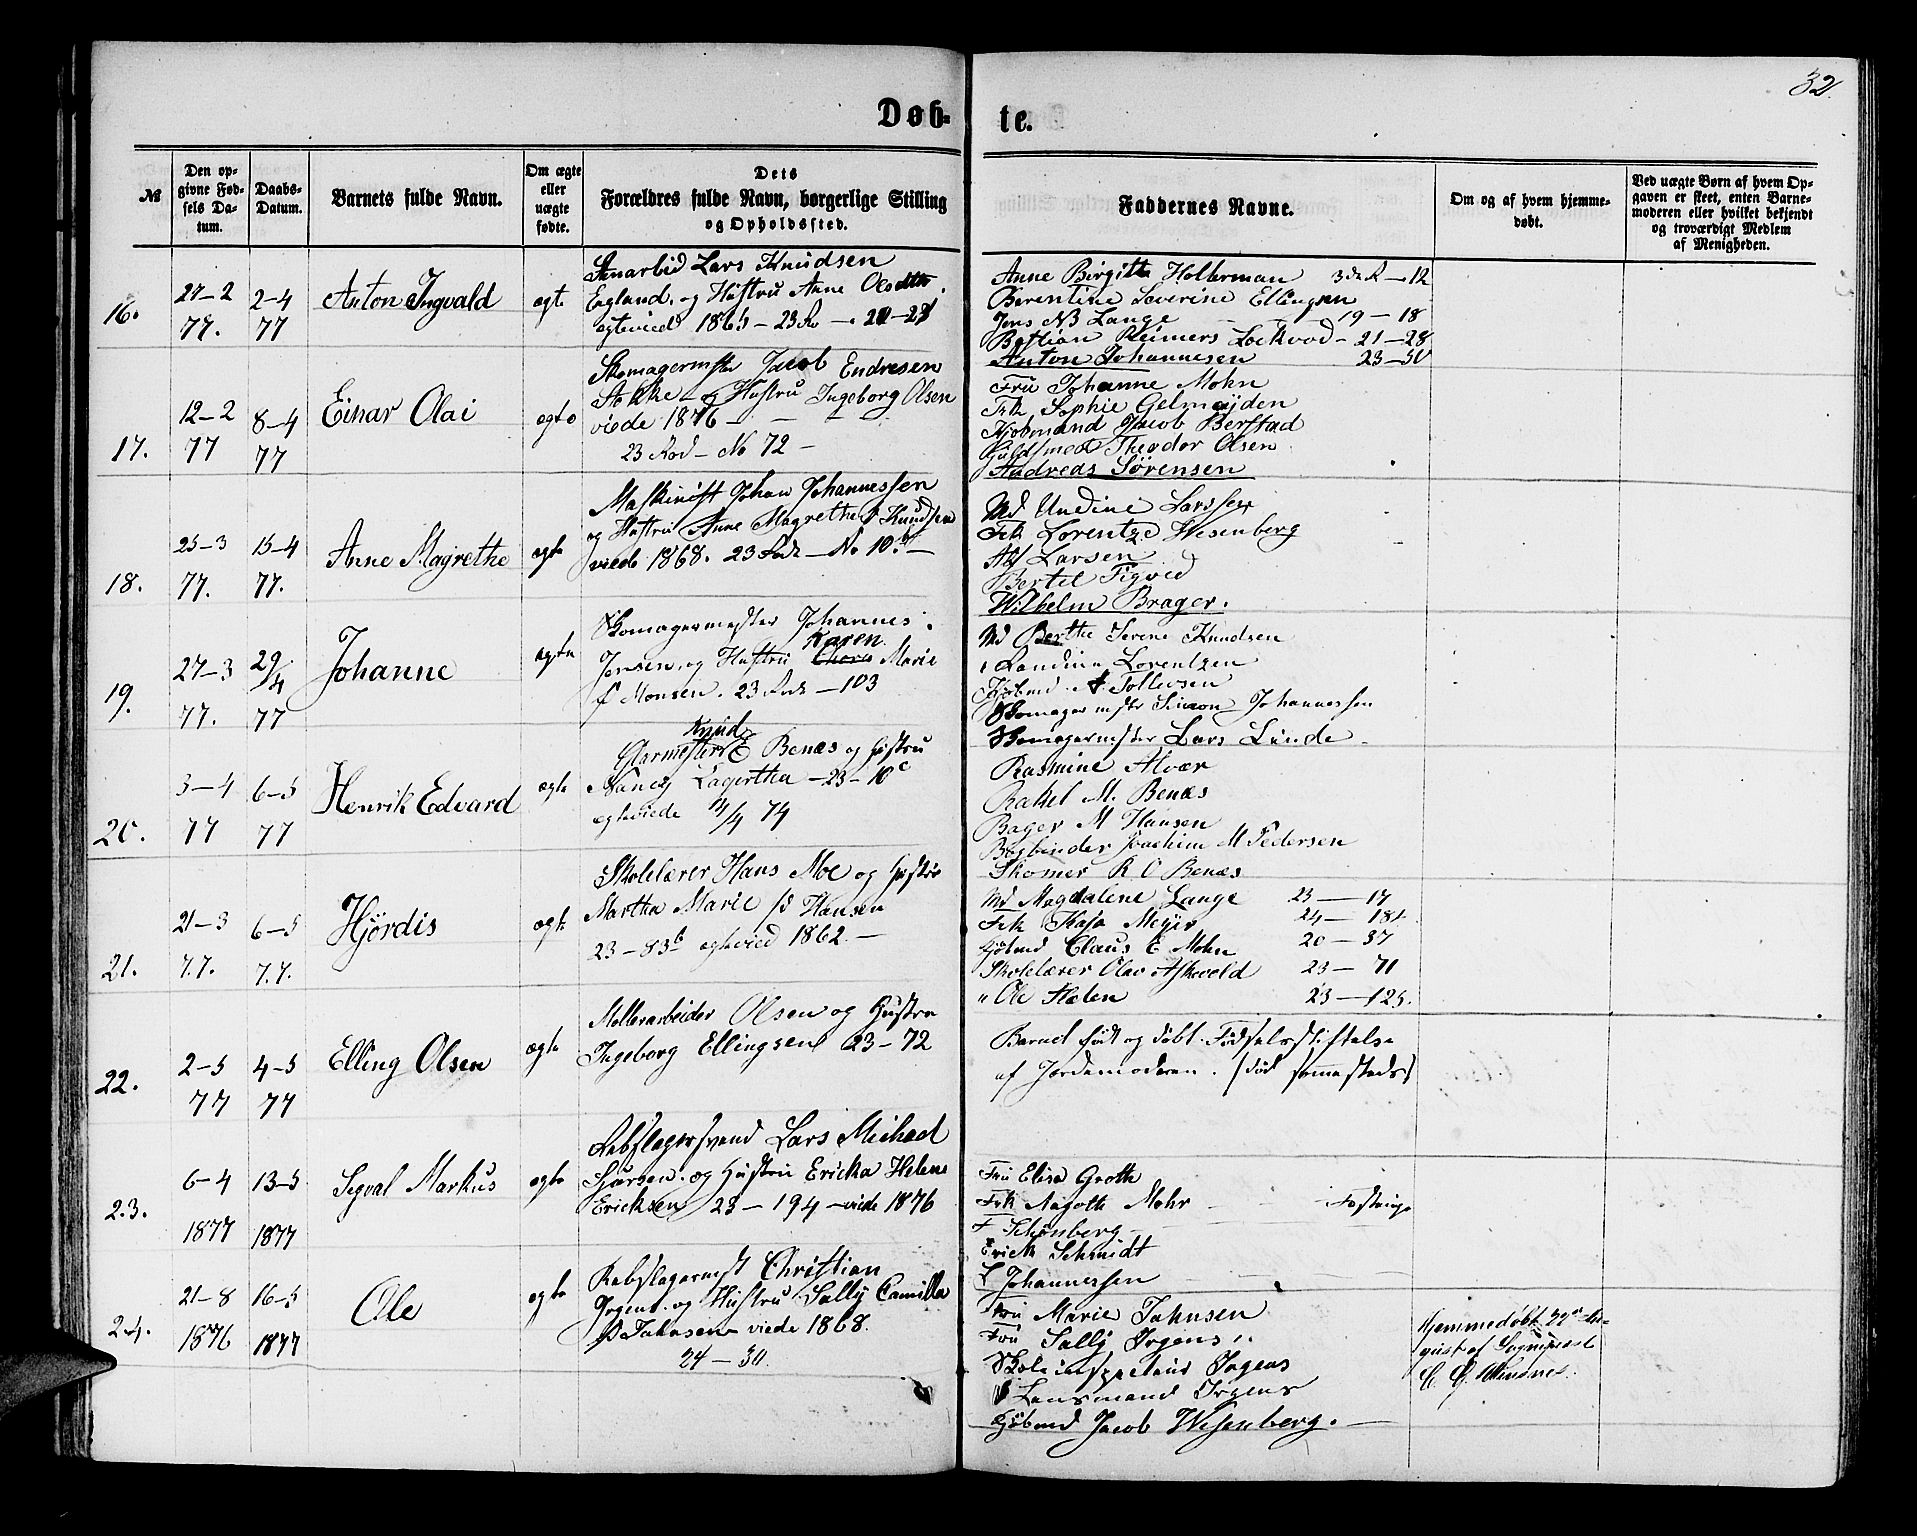 32.
Døb-
te.
№
Den op-
givne Fød-
sels Da-
tum.
Daabs-
Datum.
Barnets fulde Navn.
Om ægte
eller
uægte
fødte.
Dets
Forældres fulde Navn, borgerlige Stilling
og Opholdssted.
Faddernes Navne.
Om og af hvem hjemme-
døbt.
Ved uægte Børn af hvem Op-
gaven er skeet, enten Barne-
moderen eller hvilket bekjendt
og troværdigt Medlem
af Menigheden.
16.
27-2
77.
2-4
77
Anton Ingvald
ægte
Lars Knudsen
og Hustru Anne
ægteviede 1865 - 23 Ro -
Anne Birgitte Holterman 3de R - 12
Berentine Severine Ellingsen
Jens NB Lange - 19 - 18
Bastian Reimers Lockvod - 21 - 28
Anton Johannesen 23 - 50
17.
12-2
77
8-4
77
Einar Olai
ægte
Skomagermster Jacob Endresen
Stokke og Hustru Ingeborg Olsen
viede 1876 -
23 Rod - No 72 -
Fru Johanne Mohn
Frk Sophie Gelmeyden
Kjøbmand Jacob Berstad
Guldsmed Theodor Olsen
Andreas Sørensen
18.
25-3
77.
15-4
77.
Anne Magrethe
ægte
Maskinist Johan Johannessen
og Hustru Anne Magrethe f Knudsen
viede 1868. 23 Rode - No 10.b -
Md Undine Larssen
Frk Lorentze Wesenberg
Larsen
Bertel Figved
Wilhelm Brager.
19.
27-3
77.
29/4
77
Johanne
ægte
Skomagermester Johannes
Karen
Jensen og Hustru Marie
f Monsen. 23 Rode - 103
Md Berthe Serine Knudsen
Lorentzen
Kjøbmd Tollevsen
Skomagermster Simon Johannessen
Skomagermester Lars Linde
20.
3-4
77
6-5
77
Henrik Edvard
ægte
Knud
Glarmester E Benæs og Hustru
Nancy Lagertha - 23 - 10c
ægteviede 14/4 74
Rasmine Alvær
Rakel M. Benæs
Bager M Hansen
Bogbinder Joachim M Pedersen
Skomer R O Benæs
21.
21-3
77.
6-5
77.
Hjørdis
ægte
Skolelærer Hans Moe og Hustru
Martha Marie f Hansen
23 - 83b ægteviede 1862. -
Md Magdalene Lange 23 - 17
Frk Kaja Meyer 24 - 181
Kjøbmd Claus E Mohn 20 - 37
Skolelærer Olav Askevold 23 - 71
" Ole Hølen 23 - 125.
22.
2-5
77
4-5
77
Elling Olsen
ægte
Møllerarbeider Olsen og Hustru
Ingeborg Ellingsen 23 - 72
Barnet født og døbt Fødselsstiftelse
af Jordemoderen. (død sammesteds)
23.
6-4
1877
13-5
1877
Sigval Markus
ægte
Rebslagersvend Lars Michael
og Hustru Ericka Helene
Ericksen 23 - 194 - viede 1876
Fru Elisa Groth
Frk Aagoth Mohr
F Schønberg
Erick Schmidt
L Johannessen
24.
21-8
1876
16-5
1877
Ole
ægte
Rebslagermst Christian
Irgens og Hustru Sally Camilla
f Jahnsen viede 1868.
24 - 30.
Fru Marie Jahnsen
Fru Sally Irgens
Skoleinspecteur Irgens
Lensmand Irgens
Kjøbmd Jacob Wesenberg.
Hjemmedøbt 22de Au-
gust af Sogneprest